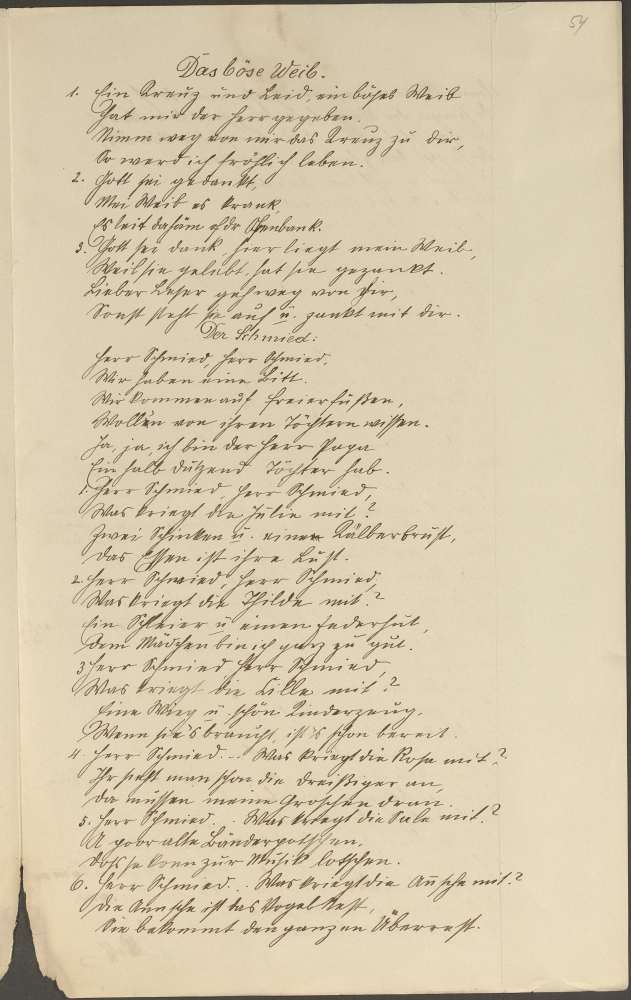 54
Das böse Weib.
1. Ein Kreuz und Leid, ein böses Weib
Hat mir der Herr gegeben.
Nimm weg von mir das Kreuz zu dir,
So werd ich fröhlich leben.
2. Gott sei gedankt,
Mei Weib es krank,
Es leit dahäm of dr Ofenbank.
3. Gott sei dank, hier liegt mein Weib,
Weil sie gelebt, hat sie gezankt.
Lieber Leser geh weg von hir,
Sonst steht sie auf u. zankt mit dir.
Der Schmied:
Herr Schmied, Herr Schmied,
Wir haben eine Bitt.
Wir kommen auf Freiersfüßen,
Wollen von ihren Töchtern wissen.
Ja, ja, ich bin der Herr Papa
Ein halb dutzend Töchter hab.
1. Herr Schmied, Herr Schmied,
Was kriegt die Julie mit?
Zwei Schinken u. einen Kälberbrust,
Das Essen ist ihre Lust.
2. Herr Schmied, Herr Schmied,
Was kriegt die Thilde mit?
Ein Schleier u. einen Federhut,
Dem Mädchen bin ich ganz zu gut.
3. Herr Schmied Herr Schmied,
Was kriegt die Lille mit?
Eine Wieg u. schön Kinderzeug.
Wenn sie's braucht, ist's schon bereit.
4. Herr Schmied... Was kriegt die Rosa mit?
Ihr sieht man schon die dreißiger an,
Da müssen meine Groschen dran.
5. Herr Schmied... Was kriegt die Sale mit?
A poor alte Bänderpotschen,
Doß se konn zur Musik lotschen.
6. Herr Schmied... Was kriegt die Annsche mit?
Die Annsche ist das Vogel Nest,
Sie bekommt den ganzen Überrest.